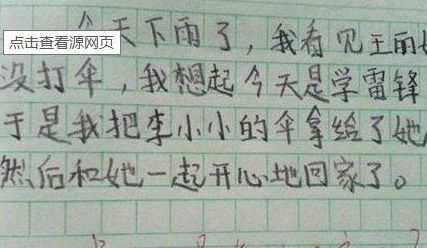 点击查看源网页
今天下雨了，我看见王丽
没打伞，我想起今天是学雷锋
于是我把李小小的伞拿给了她
然后和她一起开心地回家了。